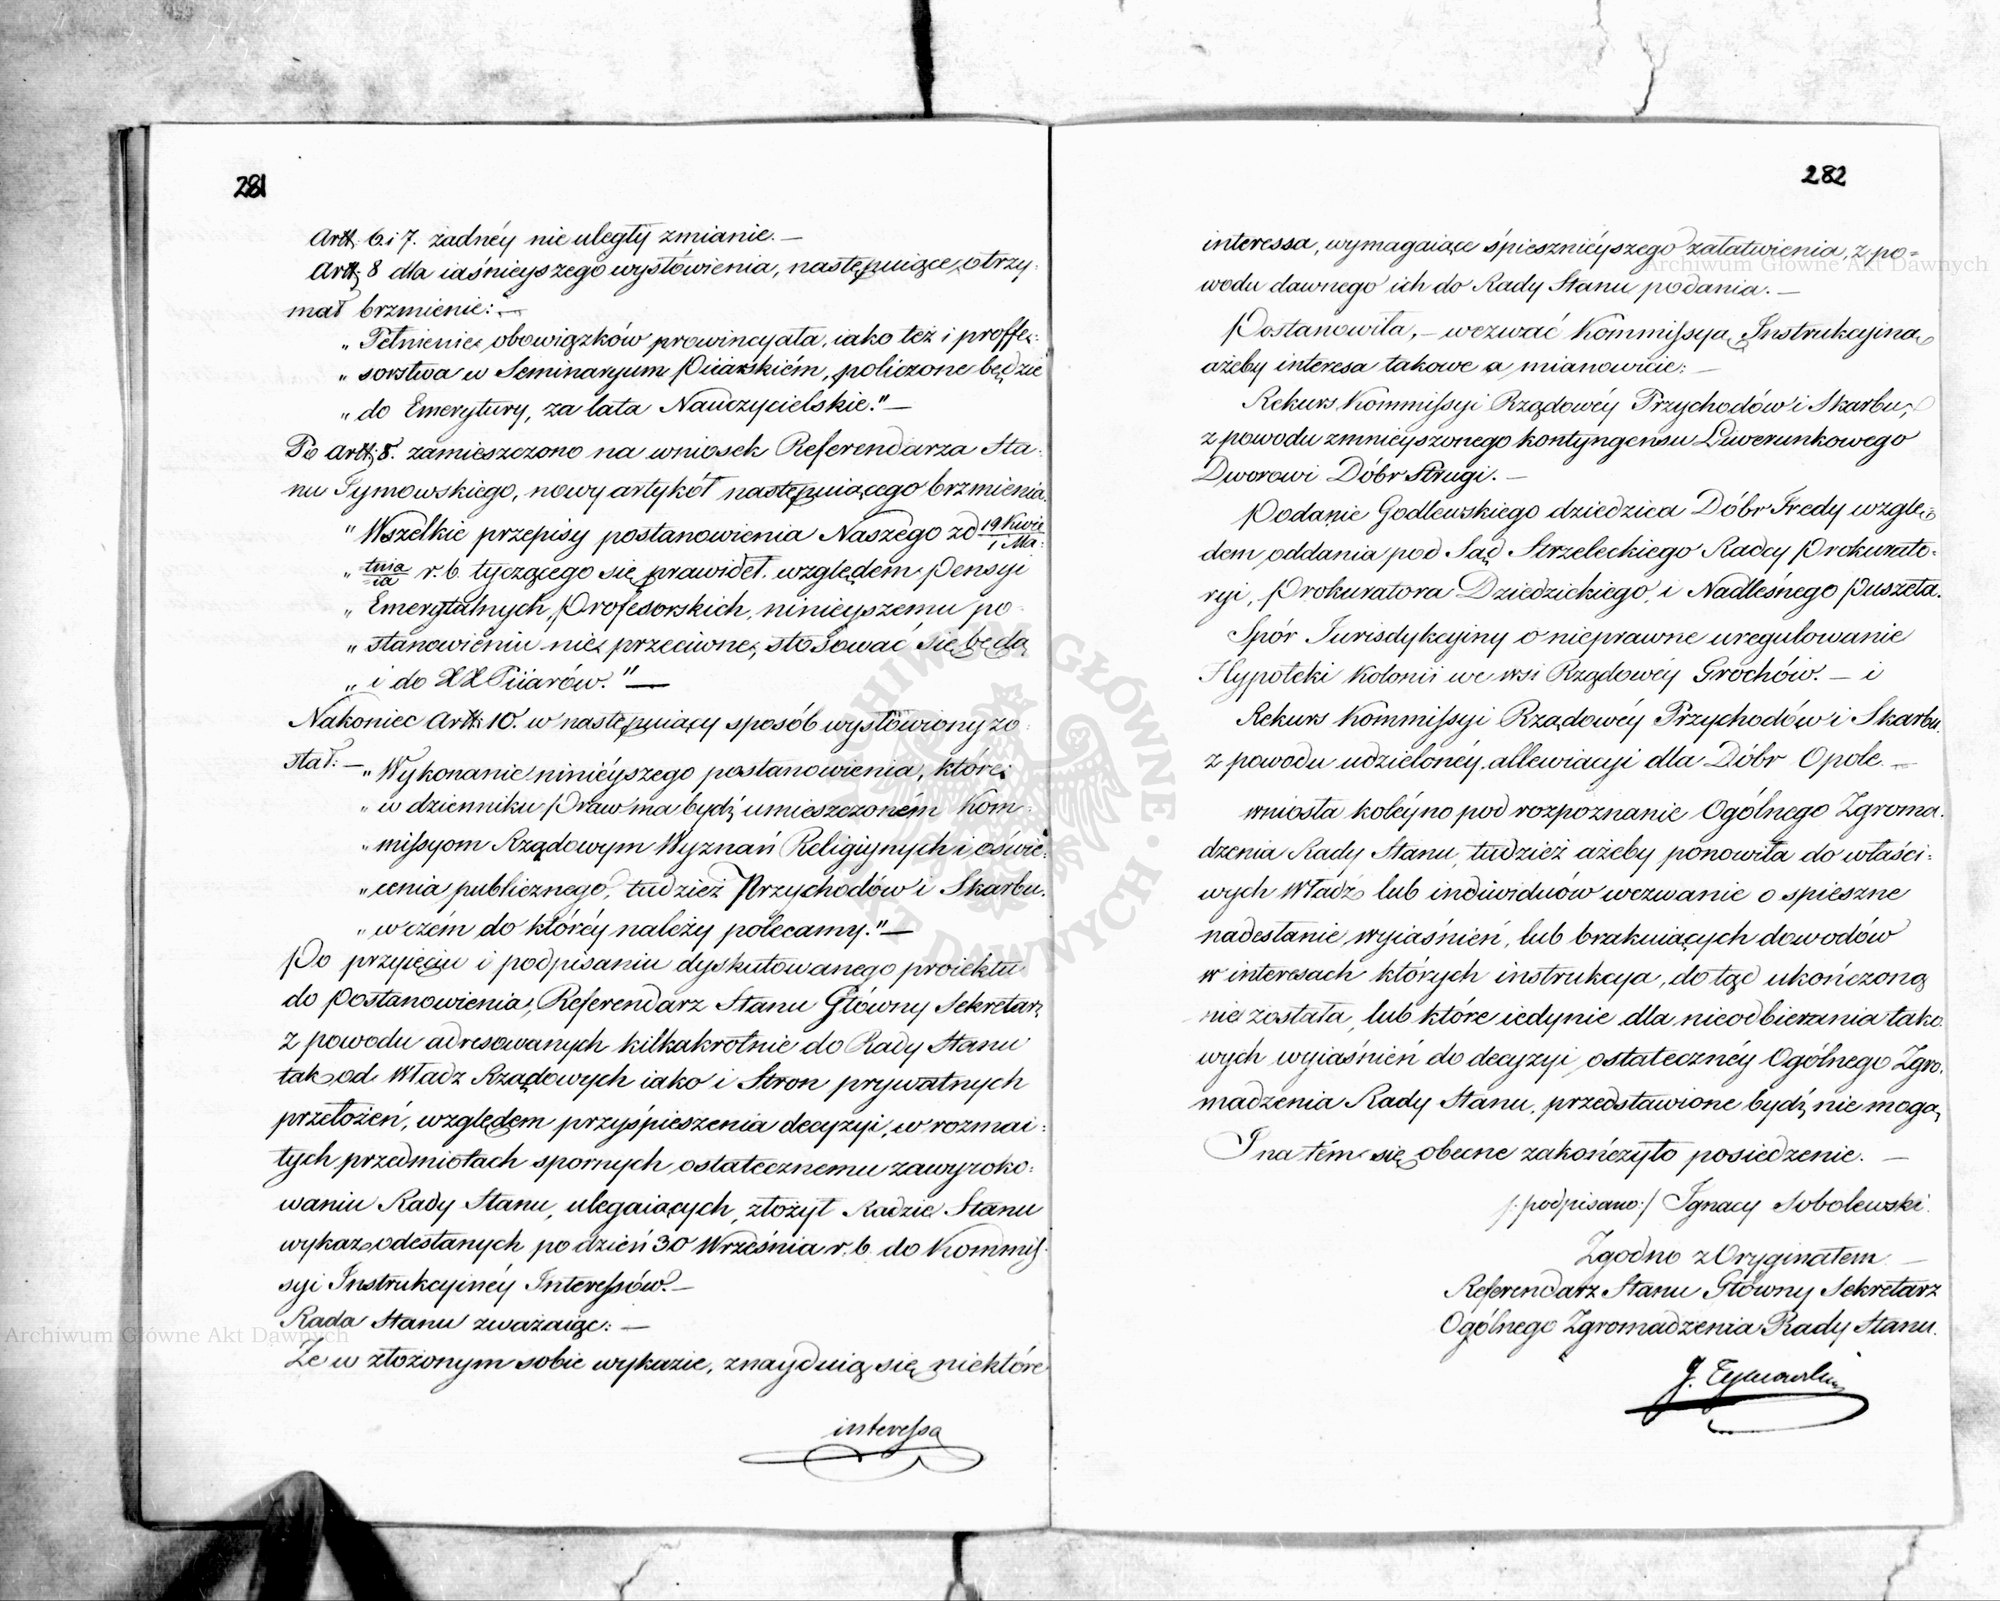 281
Artt. 6. i 7. żadnéy nie uległy zmianie. —
Artt. 8 dla iaśnieyszego wysłówienia, następuiące otrzy-
mał brzmienie: —
„ Pełnienie obowiązków prowincyała, iako też i proffe-
„ sorstwa w Seminaryum Piiarskiém, policzone będzie
„ do Emerytury, za lata Nauczycielskie." —
Po artt. 8. zamieszczono na wniosek Referendarza Sta-
nu Tymowskiego, nowy artykół następuiącego brzmienia.
„ Wszelkie przepisy postanowienia Naszego zd 19 Kwie/1 Ma-
„ tnia/ia r. b. tyczącego się prawideł względem Pensyi
„ Emerytalnych Profesorskich, ninieyszemu po-
„ stanowieniu nie przeciwne, stosować się będą
„ i do XX Piiarów." —
Nakoniec Artt. 10. w następuiący sposób wysłówiony zo-
stał: — „ Wykonanie ninieyszego postanowienia, które
„ w dzienniku Praw ma bydź umieszczoném Kom-
„ missyom Rządowym Wyznań Religiynych i oświe-
„ cenia publicznego, tudzież Przychodów i Skarbu.
„ w czém do któréy należy polecamy." —
Po przyięciu i podpisaniu dyskutowanego proiektu
do Postanowienia, Referendarz Stanu Główny Sekretarz
z powodu adresowanych kilkakrotnie do Rady Stanu
tak od Władz Rządowych iako i Stron prywatnych
przełożeń, względem przyśpieszenia decyzyi, w rozmai-
tych przedmiotach spornych ostatecznemu zawyroko-
waniu Rady Stanu, ulegaiących, złożył Radzie Stanu
wykaz odesłanych po dzień 30 Września r. b. do Kommis-
syi Instrukcyinéy Interessów. —
Rada Stanu zważaiąc: —
Że w złożonym sobie wykazie, znayduią się niektóre
interessa
282
interessa, wymagaiące śpieszniéyszego załatwienia, z po-
wodu dawnego ich do Rady Stanu podania. —
Postanowiła, — wezwać Kommissyą Instrukcyiną
ażeby interesa takowe a mianowicie: —
Rekurs Kommissyi Rządowéy Przychodów i Skarbu,
z powodu zmnieyszonego kontyngensu Liwerunkowego
Dworowi Dóbr Strugi. —
Podanie Godlewskiego dziedzica Dóbr Fredy wzglę-
dem oddania pod Sąd Strzeleckiego Radcy Prokurato-
ryi, Prokuratora Dziedzickiego, i Nadleśnego Puszeta.
Spór Jurisdykcyiny o nieprawne uregulowanie
Hypoteki Kolonii we wsi Rządowéy Grochów. — i
Rekurs Kommissyi Rządowéy Przychodów i Skarbu,
z powodu udzielonéy allewiacyi dla Dóbr Opole. —
wniosła koleyno pod rozpoznanie Ogólnego Zgroma-
dzenia Rady Stanu, tudzież ażeby ponowiła do właści-
wych Władz lub indiwiduów wezwanie o spieszne
nadesłanie wyiaśnień, lub brakuiących dowodów
w interesach których instrukcya, do tąd ukończoną
nie została, lub które iedynie dla nieodbierania tako-
wych wyiaśnień do decyzyi ostatecznéy Ogólnego Zgro-
madzenia Rady Stanu, przedstawione bydź nie mogą.
I na tém się obecne zakończyło posiedzenie. —
/: podpisano:/ Ignacy Sobolewski.
Zgodno z Oryginałem —
Referendarz Stanu Główny Sekretarz
Ogólnego Zgromadzenia Rady Stanu.
J. Tymowski
Archiwum Główne Akt Dawnych
Archiwum Główne Akt Dawnych
ARCHIWUM GŁÓWNE · AKT DAWNYCH ·